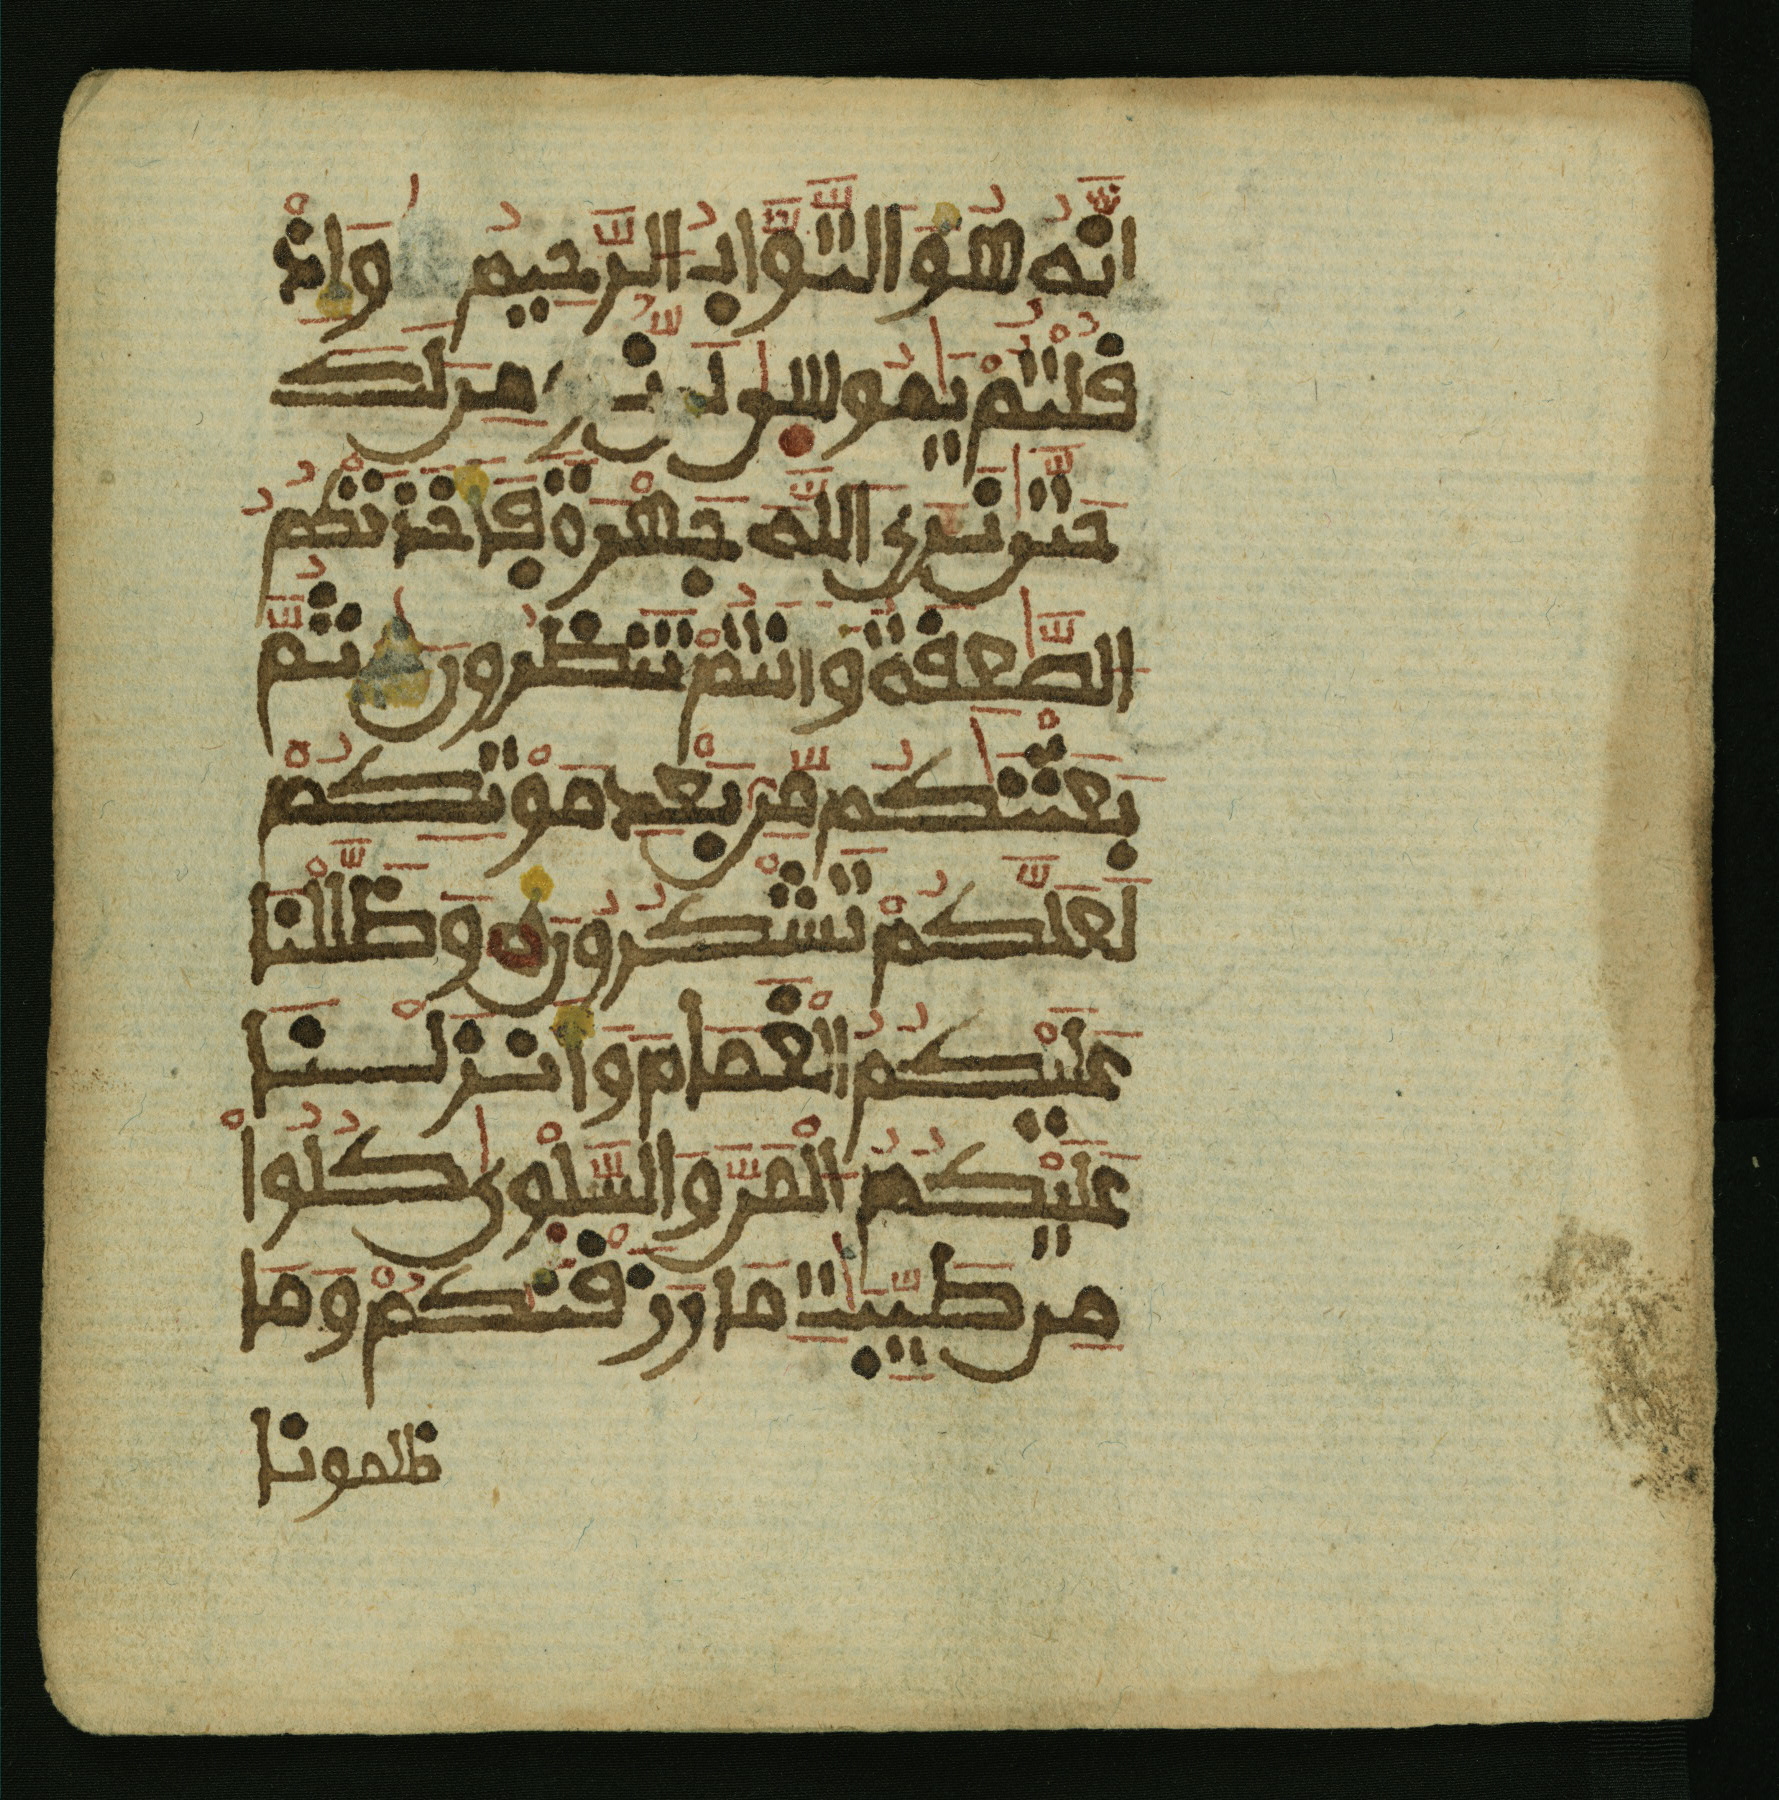 اِنَّهُ هُوَ التَّوَّابُ الرَّحِيمُ وَإِذْ
قُلْتُمْ يَٰمُوسٜىٰ لَن نُّومِنَ لَكَ
حَتَّىٰ نَرَى اللَّهَ جَهْرَةً فَأَخَذَتْكُمُ
الصَّٰعِقَةُ وَأَنتُمْ تَنظُرُونَ ثُمَّ
بَعَثْنَٰكُم مِّنۢ بَعْدِ مَوْتِكُمْ
لَعَلَّكُمْ تَشْكُرُونَ وَظَلَّلْنَا
عَلَيْكُمُ الْغَمَامَ وَأَنزَلْنَا
عَلَيْكُمُ الْمَنَّ وَالسَّلْوٜىٰ كُلُواْ
مِن طَيِّبَٰتِ مَا رَزَقْنَٰكُمْ وَمَا
ظلمونا